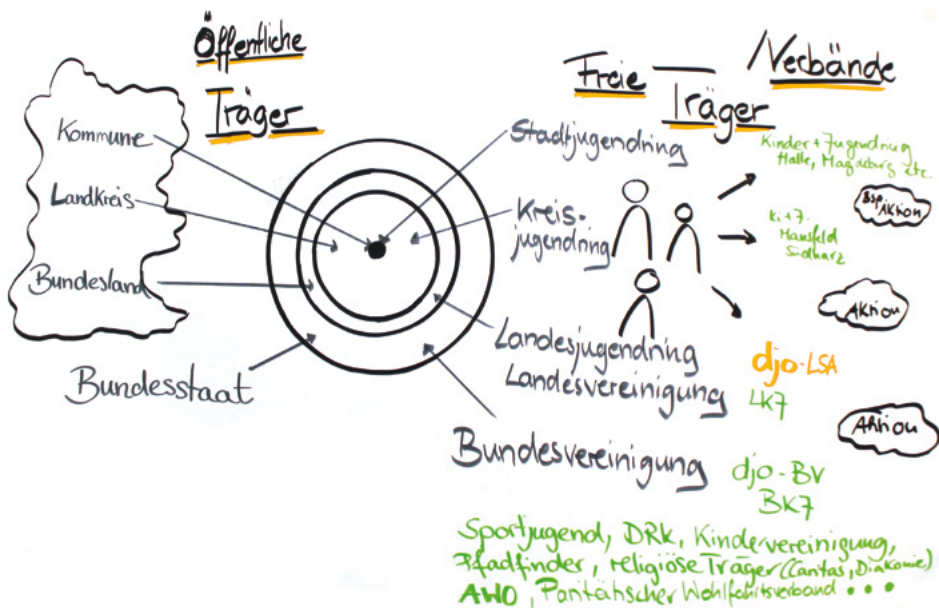 Öffentliche
Träger
Kommune
Landkreis
Bundesland
Bundesstaat
Freie Träger
/Verbände
Stadtjugendring
Kreis-
jugendring
Landesjugendring
Landesvereinigung
Bundesvereinigung
Kinder + Jugendring
Halle, Magdeburg etc.
Bsp. Aktion
Ki + J.
Mansfeld
Südharz
Aktion
djo-LSA
LKJ
Aktion
djo-BV
BKJ
Sportjugend, DRK, Kindervereinigung,
Pfadfinder, religiöse Träger (Caritas, Diakonie)
AWO, Wohlfahrtsverband • • •